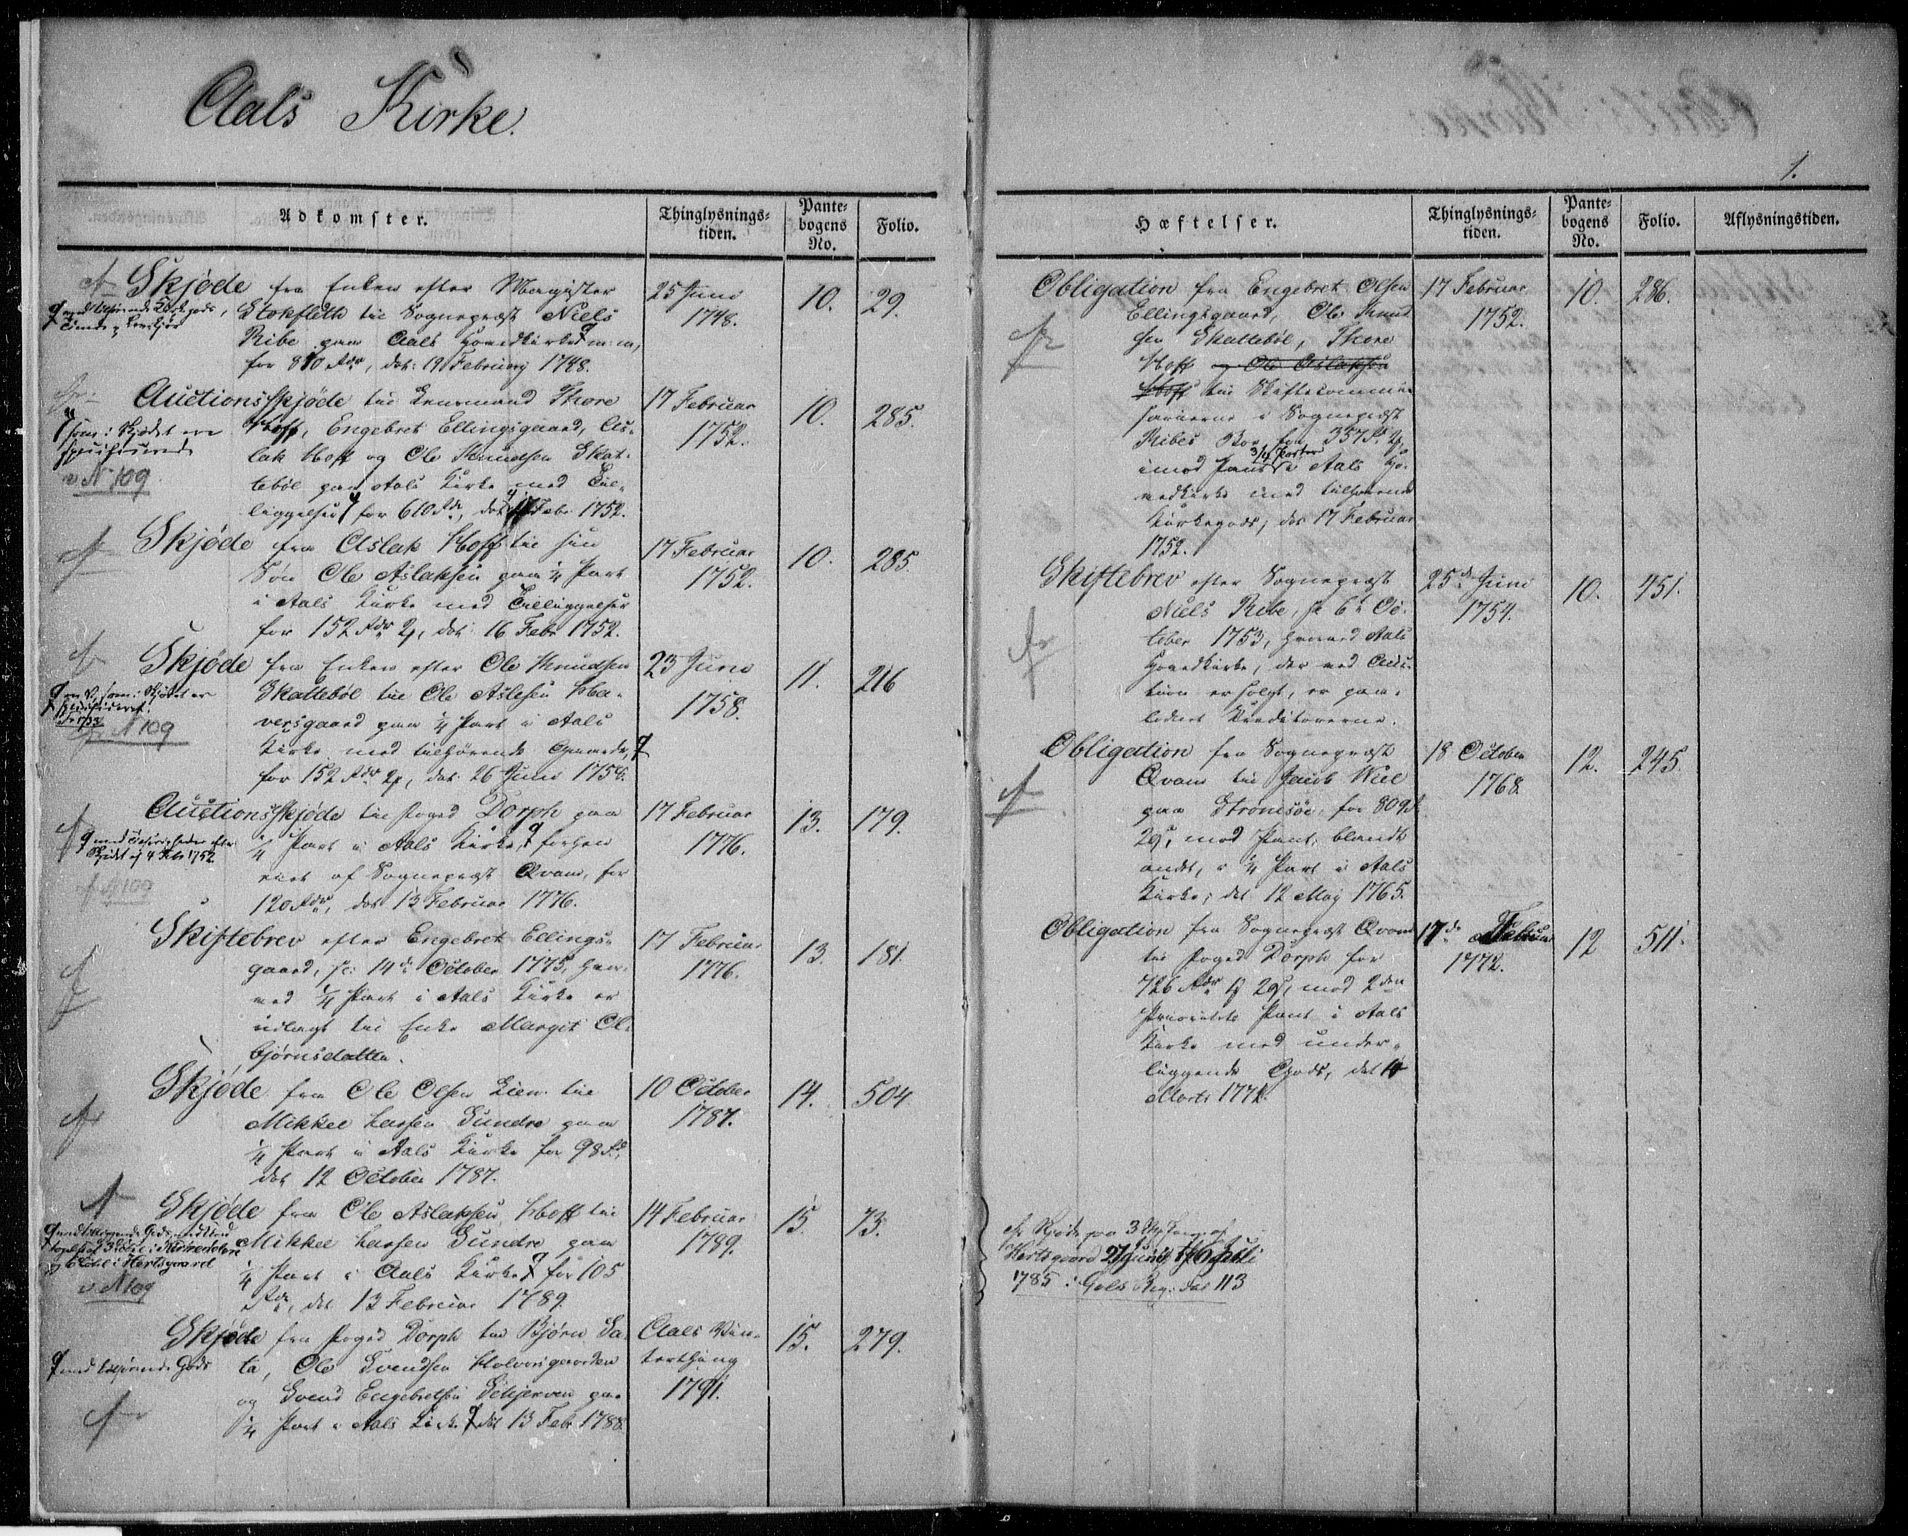 Aals Kirke.
Adkomster.
Thinglysnings-
tiden.
Pante-
bogens
No.
Folio.
Skjøde fra Enken efter Magister
Stokfleth til Sognepræst Niels
Ribe paa Aals Hovedkirke m: m,
for 810 Rdr, dat: 19 February 1748.
25 Juni
1748.
10.
29.
Auctionsskjøde til Lensmand Thore
Hoff, Engebret Ellingsgaard, As-
lak Hoff og Ole Knudsen Skat-
tebøl paa Aals Kirke med Til-
liggelser for 610 Rdr, dat Febr 1752.
som i Skjødet ere
specificerede
N 109
17 Februar
1752.
10.
285.
Skjøde fra Aslak Hoff til sin
Søn Ole Aslaksen paa 1/4 Part
i Aals Kirke med Tilliggelser
for 152 Rdr 2, dat: 16 Febr 1752.
17 Februar
1752.
10.
285.
Skjøde fra Enken efter Ole Knudsen
Skattebøl til Ole Aslesen
paa 1/4 Part i Aals
Kirke med tilhørende
for 152 Rdr 2, dat: 26 Juni
N 109
23 Juni
1758.
11.
216
Auctionsskjøde til Foged Dorph paa
1/4 Part i Aals Kirke, forhen
eiet af Sognepræst Qvam, for
120 Rdr, dat 13 Februar 1776.
N 109
17 Februar
1776.
13.
179.
Skiftebrev efter Engebret Ellings-
gaard, 14de October 1775, hvor-
ved 1/4 Part i Aals Kirke er
udlagt til Enke Margit Ol-
bjørnsdatter.
17 Februar
1776.
13.
181.
Skjøde fra Ole Olsen Lien til
Mikkel Larsen Sundre paa
1/4 Part i Aals Kirke for 98 Rd,
dat 12 October 1787.
10 October
1787.
14.
504
Skjøde fra Ole Aslaksen Hoff til
Mikkel Larsen Sundre paa
1/4 Part i Aals Kirke for 105
Rdr, dat 13 Februar 1789.
N 109
14 Februar
1789.
15
73.
Skjøde fra Foged Dorph til Bjørn Sa-
ta, Ole Svendsen
og Svend Engebretsen paa
1/4 Part i Aals Kirke dat 13 Febr 1788
med tilhørende Gods
Aals Vin-
terthing
1791.
15.
279.
1.
Hæftelser.
Thinglysnings-
tiden.
Pante-
bogens
No.
Folio.
Aflysningstiden.
Obligation fra Engebret Olsen
Ellingsgaard, Ole Knud-
sen Skattebøl, Thore
Hoff og Ole Aslaksen
Hoff til Skiftecommis-
sairerne i Sognepræst
Ribes Boe for 357 Rd 2,
imod Pant i 3/4 Parter Aals Ho-
vedkirke med tilhørende
Kirkegods; dat 17 Februar
1752.
17 Februar
1752.
10.
286.
Skiftebrev efter Sognepræst
Niels Ribe, 6te Oc-
tober 1753, hvorved Aals
Hovedkirke, der ved Auc-
tion er solgt, er paa-
lodnet Kreditorerne.
25de Juni
1754.
10.
451.
Obligation fra Sognepræst
Qvam til Jacob Wiel
paa Strømsøe for 809
29, mod Pant, blandt
andet, i 1/4 Part i Aals
Kirke; dat 12 May 1765.
18 October
1768
12.
245.
Obligation fra Sognepræst Qvam
til Foged Dorph for
726 Rdr 1 29, mod 2den
Prioritets Pant i Aals
Kirke med under-
liggende Gods, dat
Marts 1772
17de Februar
1772.
12
511.
Skjøde paa
Hertsgaard 27 Juni
1785 i Gols Reg: Fol 113